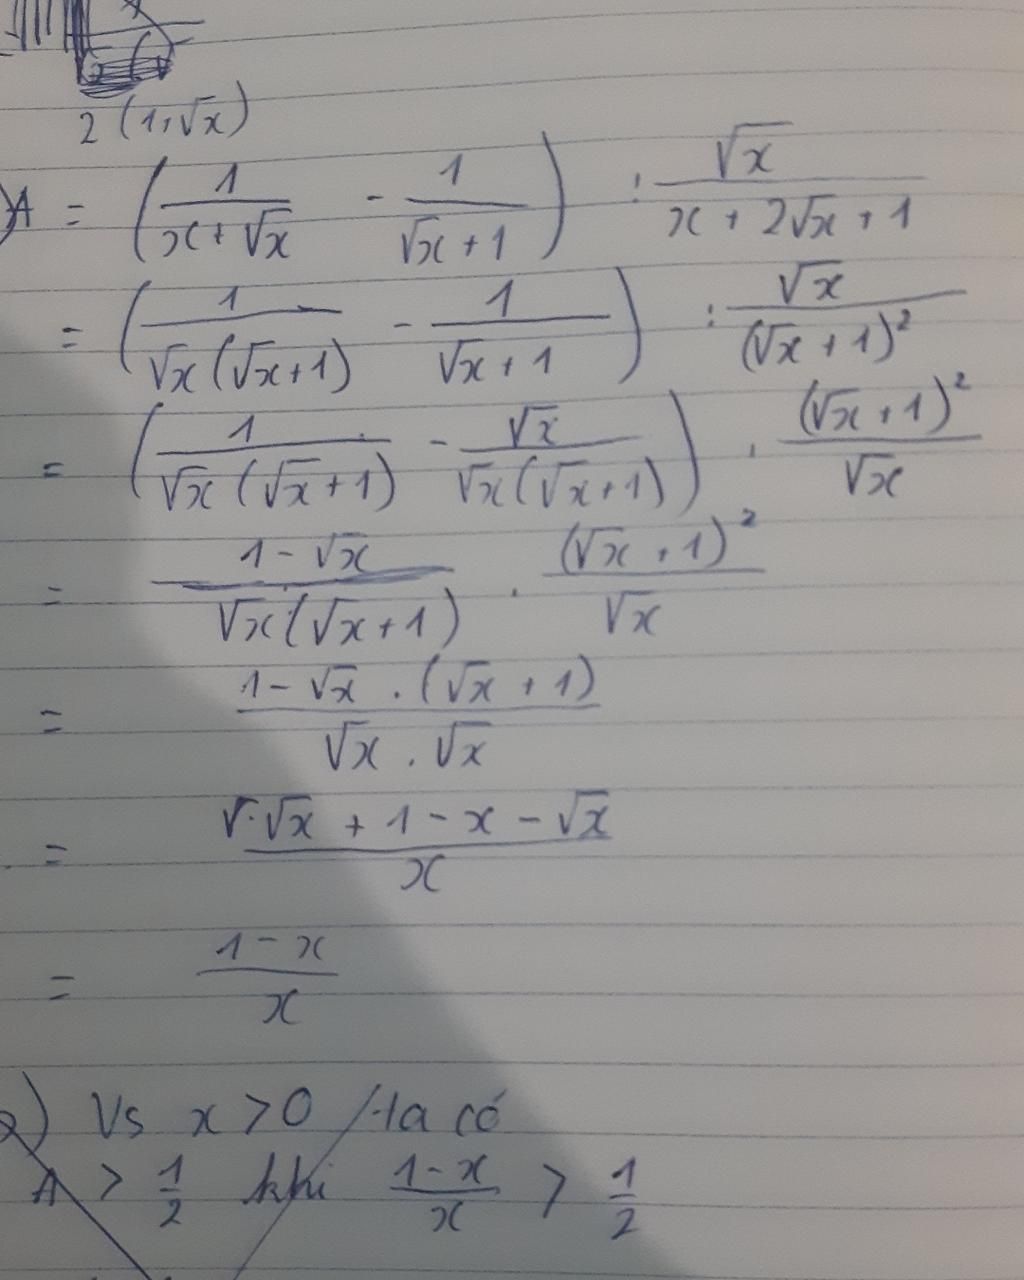 2 (1+√x)
) A = (1/(x+√x) - 1/(√x+1)) : √x/(x+2√x+1)
= (1/(√x(√x+1)) - 1/(√x+1)) : √x/(√x+1)²
= (1/(√x(√x+1)) - √x/(√x(√x+1))) . (√x+1)²/√x
= (1-√x)/(√x(√x+1)) . (√x+1)²/√x
= (1-√x . (√x+1))/(√x . √x)
= (√x + 1 - x - √x)/x
= (1-x)/x
2) Vs x > 0 ta có
A > 1/2 khi (1-x)/x > 1/2